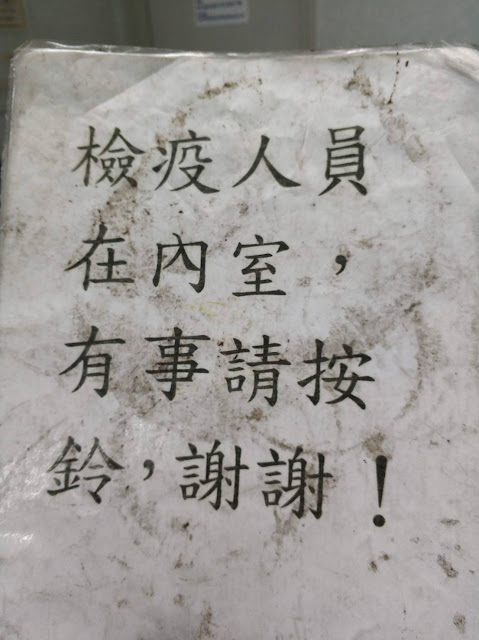 檢疫人員
在內室，
有事請按
鈴，謝謝！